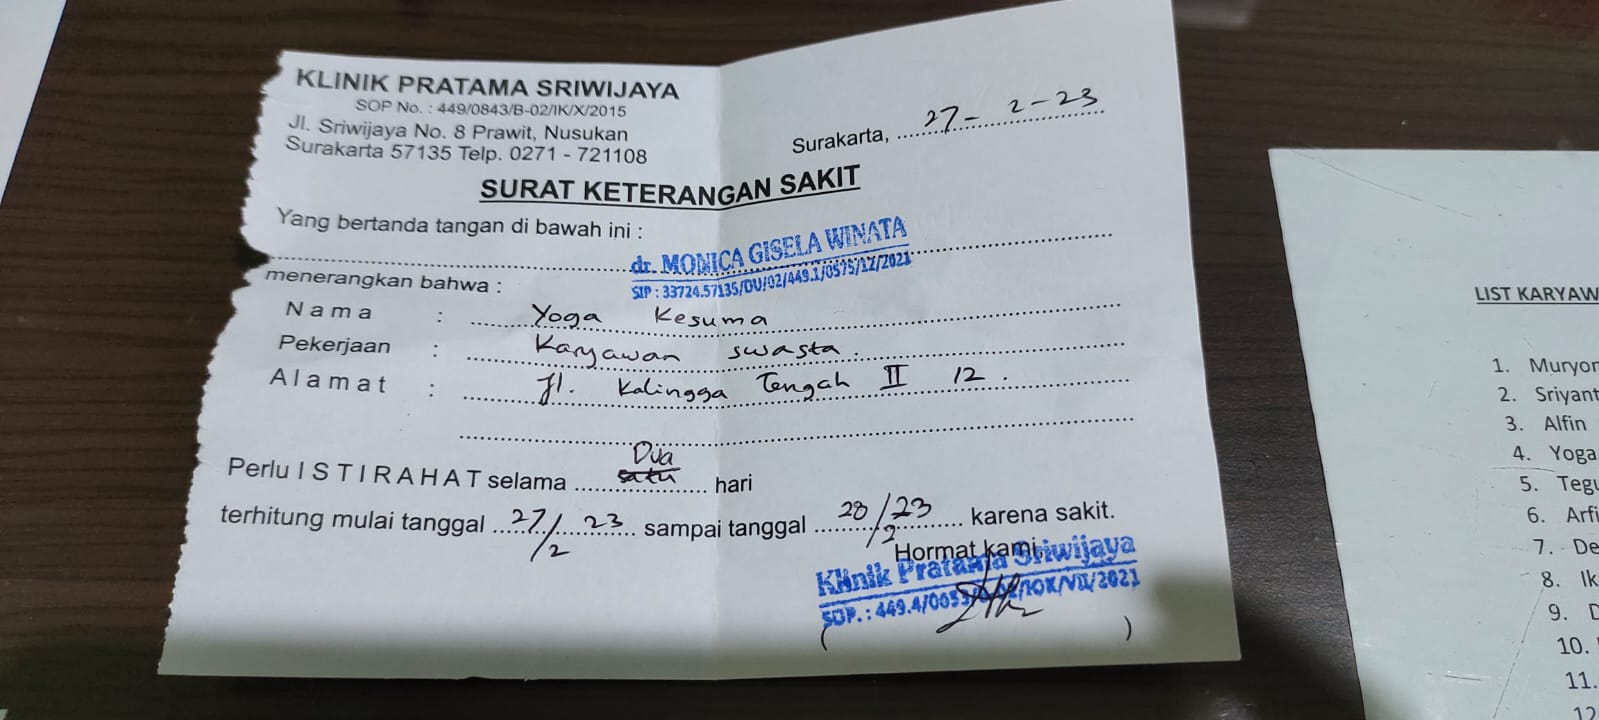 KLINIK PRATAMA SRIWIJAYA
SOP No. : 449/0843/B-02/IK/X/2015
Jl. Sriwijaya No. 8 Prawit, Nusukan
Surakarta 57135 Telp. 0271 - 721108
Surakarta, 27 - 2 - 23
SURAT KETERANGAN SAKIT
Yang bertanda tangan di bawah ini :
dr. MONICA GISELA WINATA
SIP : 33724.57135/DU/02/449.1/0575/12/2021
menerangkan bahwa :
Nama : Yoga Kesuma
Pekerjaan : Karyawan swasta.
Alamat : Jl. Kalingga Tengah II 12.
Dua
Perlu ISTIRAHAT selama satu hari
terhitung mulai tanggal 27/2 23 sampai tanggal 28/2 23 karena sakit.
Hormat kami,
Klinik Pratama Sriwijaya
SOP. : 449.4/0053/IOK/VII/2021
( )
LIST KARYAW
1. Muryon
2. Sriyant
3. Alfin
4. Yoga
5. Tegu
6. Arfi
7. De
8. Ik
9. D
10.
11.
12